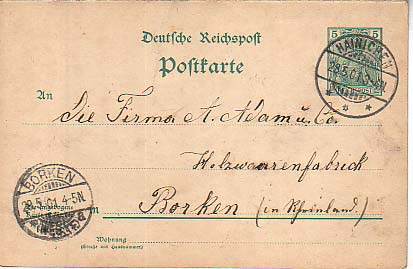 Deutsche Reichspost
5 5
Postkarte
HAINICHEN
28.5.01.
An
Die Firma A. Adam u. Co.
Holzwaarenfabrick
BORKEN
28.5.01.4-5N
in Borken (in Rheinland.)
Wohnung
(Straße und Hausnummer)